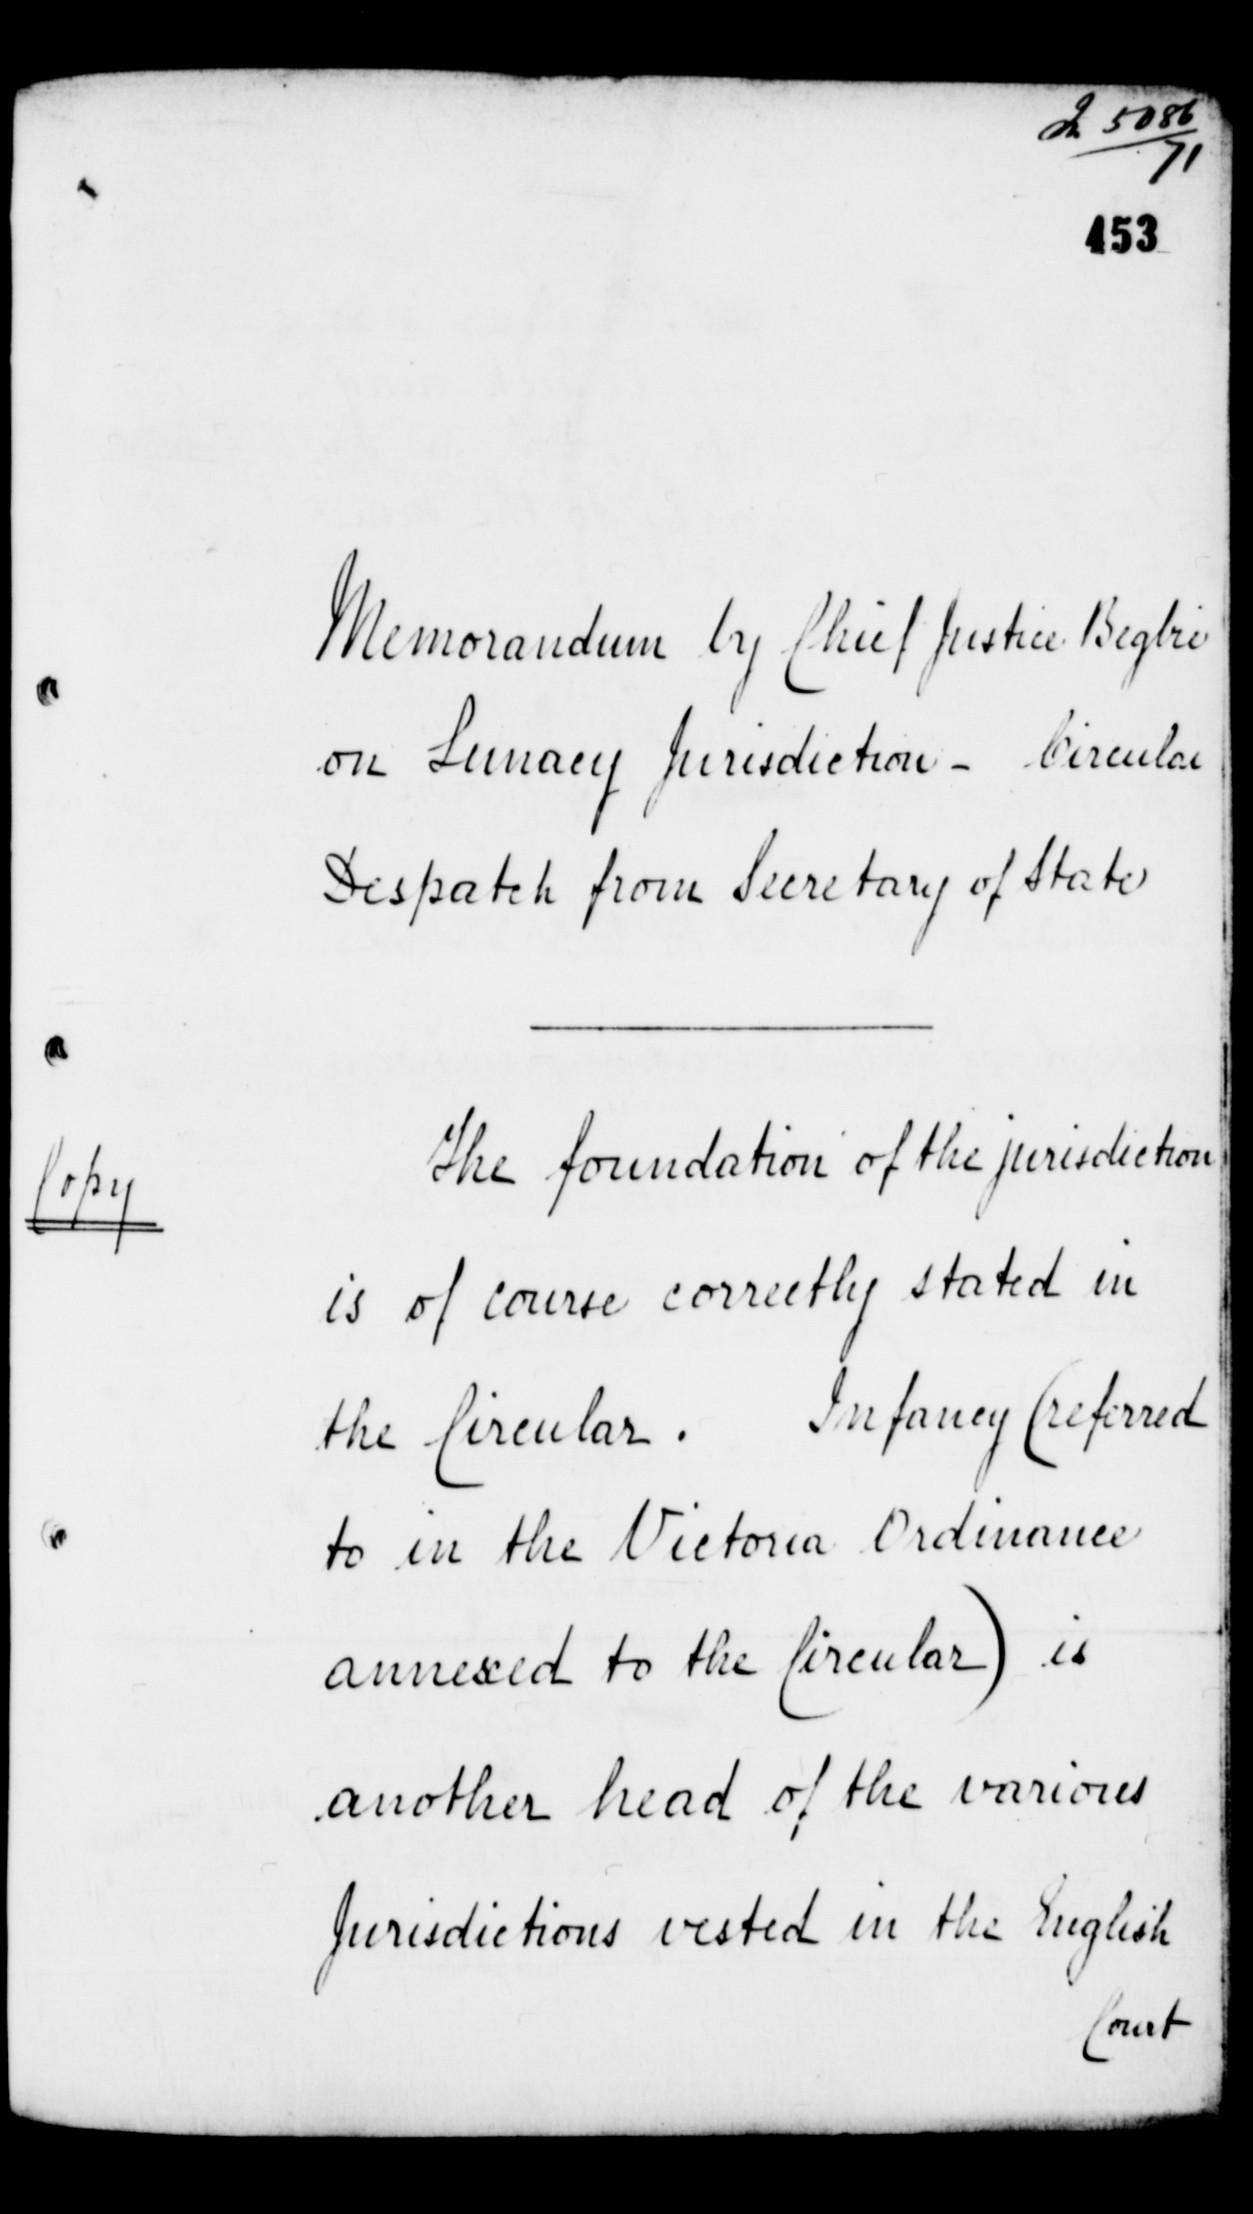 In 5086
71
453
Memorandum by Chief Justice Begbie
on Lunacy Jurisdiction - Circular
Despatch from Secretary of State
Copy
The foundation of the jurisdiction
is of course correctly stated in
the Circular. Infancy (referred
to in the Victoria Ordinance
annexed to the Circular) is
another head of the various
Jurisdictions vested in the English
Court